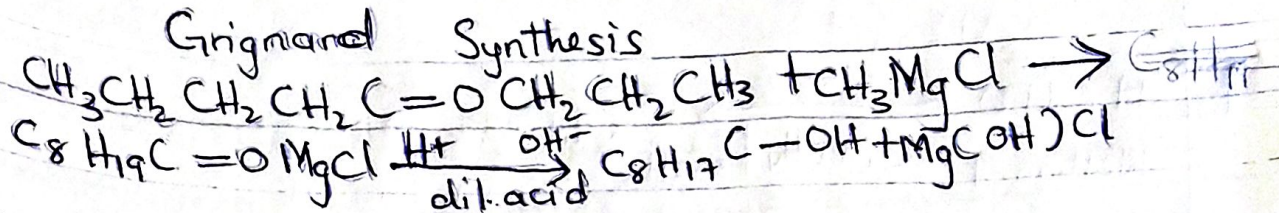 Grignand Synthesis
CH₃CH₂ CH₂ CH₂ C=O CH₂ CH₂ CH₃ + CH₃MgCl →
C₈ H₁₉C =O MgCl H+ OH⁻ dil. acid → C₈H₁₇ C—OH + Mg(OH)Cl